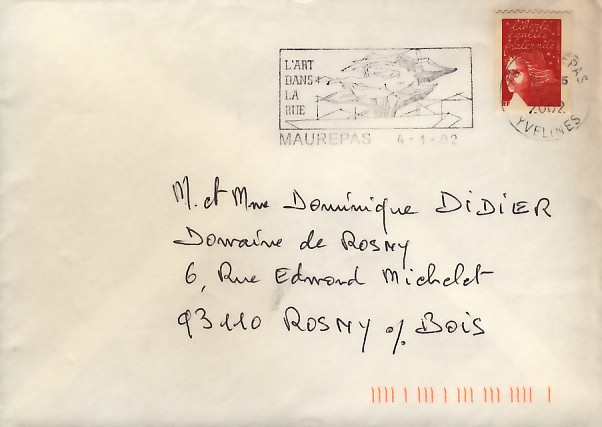 L'ART
DANS
LA
RUE
MAUREPAS 4-1-02
liberté
égalité
fraternité
RF
YVELINES
M. et Mme Dominique DIDIER
Domaine de ROSNY
6, Rue Edmond Michelet
93110 ROSNY s/s BOIS